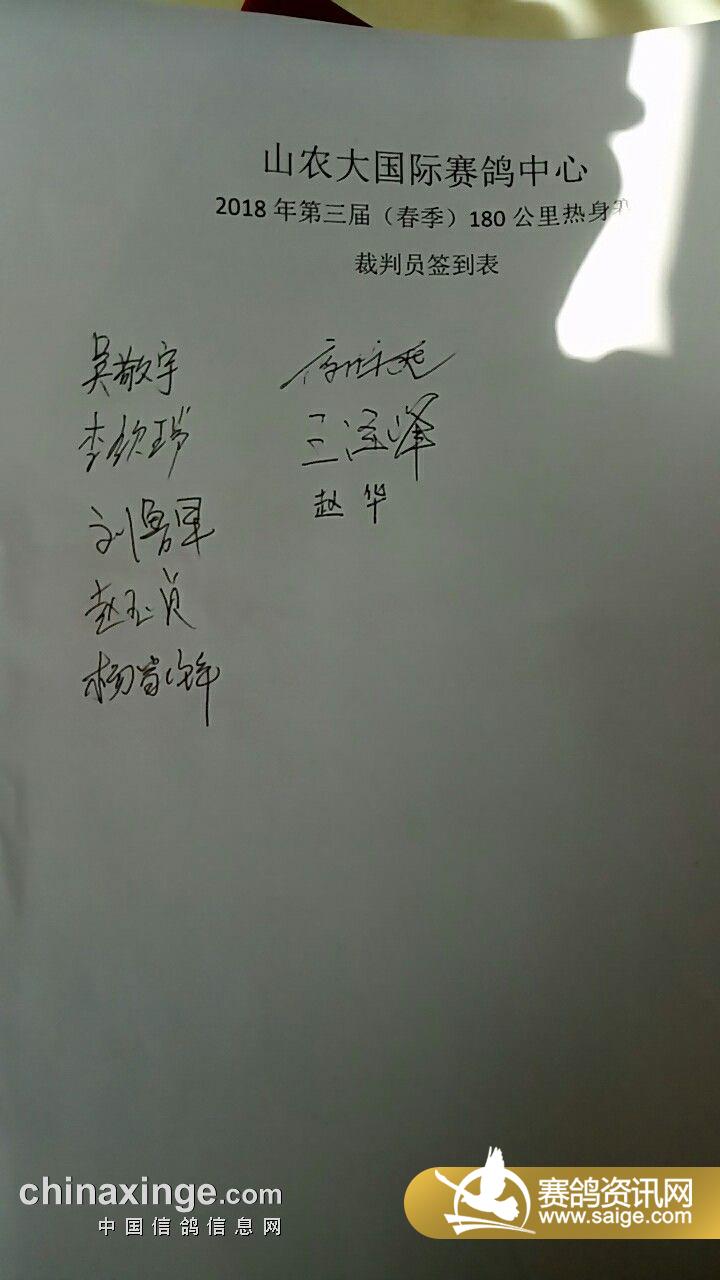 山农大国际赛鸽中心
2018 年第三届（春季）180 公里热身赛
裁判员签到表
吴敬宇
李钦瑞
刘鲁军
赵玉贞
赵华
chinaxinge.com
中国信鸽信息网
赛鸽资讯网
www.saige.com